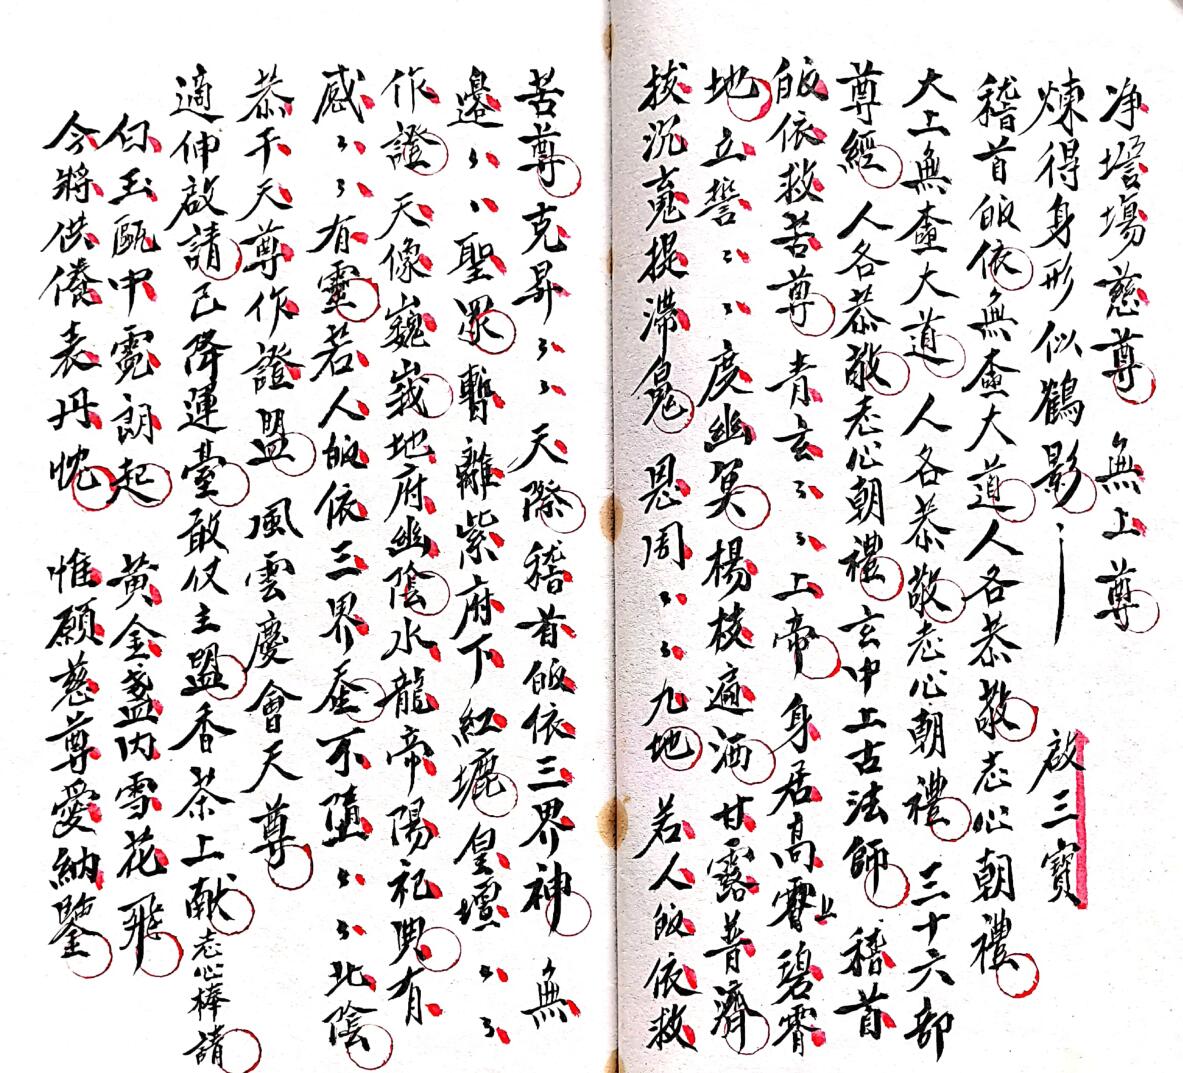 净壇場慈尊 無上尊
煉得身形似鶴影 啟三寶
稽首皈依無上大道人各恭敬志心朝禮
大上無上大道 人各恭敬志心朝禮 三十六部
尊經 人各恭敬志心朝禮 玄中上古法師 稽首
皈依救苦尊 青玄〻〻上帝 身居高上碧霄
地 立誓〻〻度幽冥 楊枝遍洒甘露普濟
拔沉魂提滯魄 恩周〻〻九地 若人皈依救
苦尊克昇〻〻天際 稽首皈依三界神 無
邊〻〻聖眾暫離紫府下紅塵皇壇〻〻
作證 天像巍峩地府幽陰水龍帝陽祀典有
感〻〻有靈若人皈依三界 不墮〻〻北陰
恭干天尊作證盟 風雲慶會天尊
適伸啟請已降運臺敢仗主盟香茶上献志心棒請
白玉甌中雲朗起 黃金盞内雪花飛
今將供養表丹忱 惟願慈尊愛納鑒